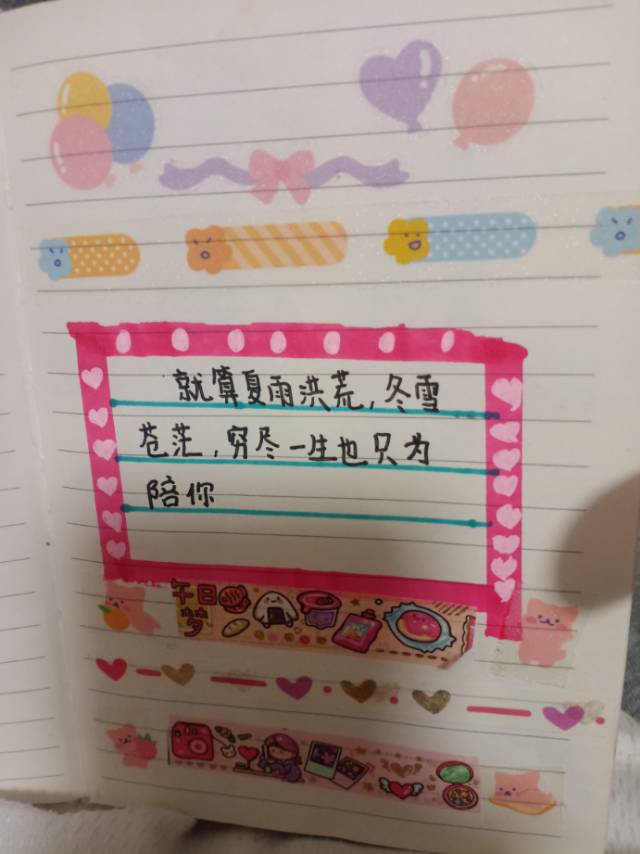 就算夏雨洪荒,冬雪
苍茫,穷尽一生也只为
陪你
午日
梦